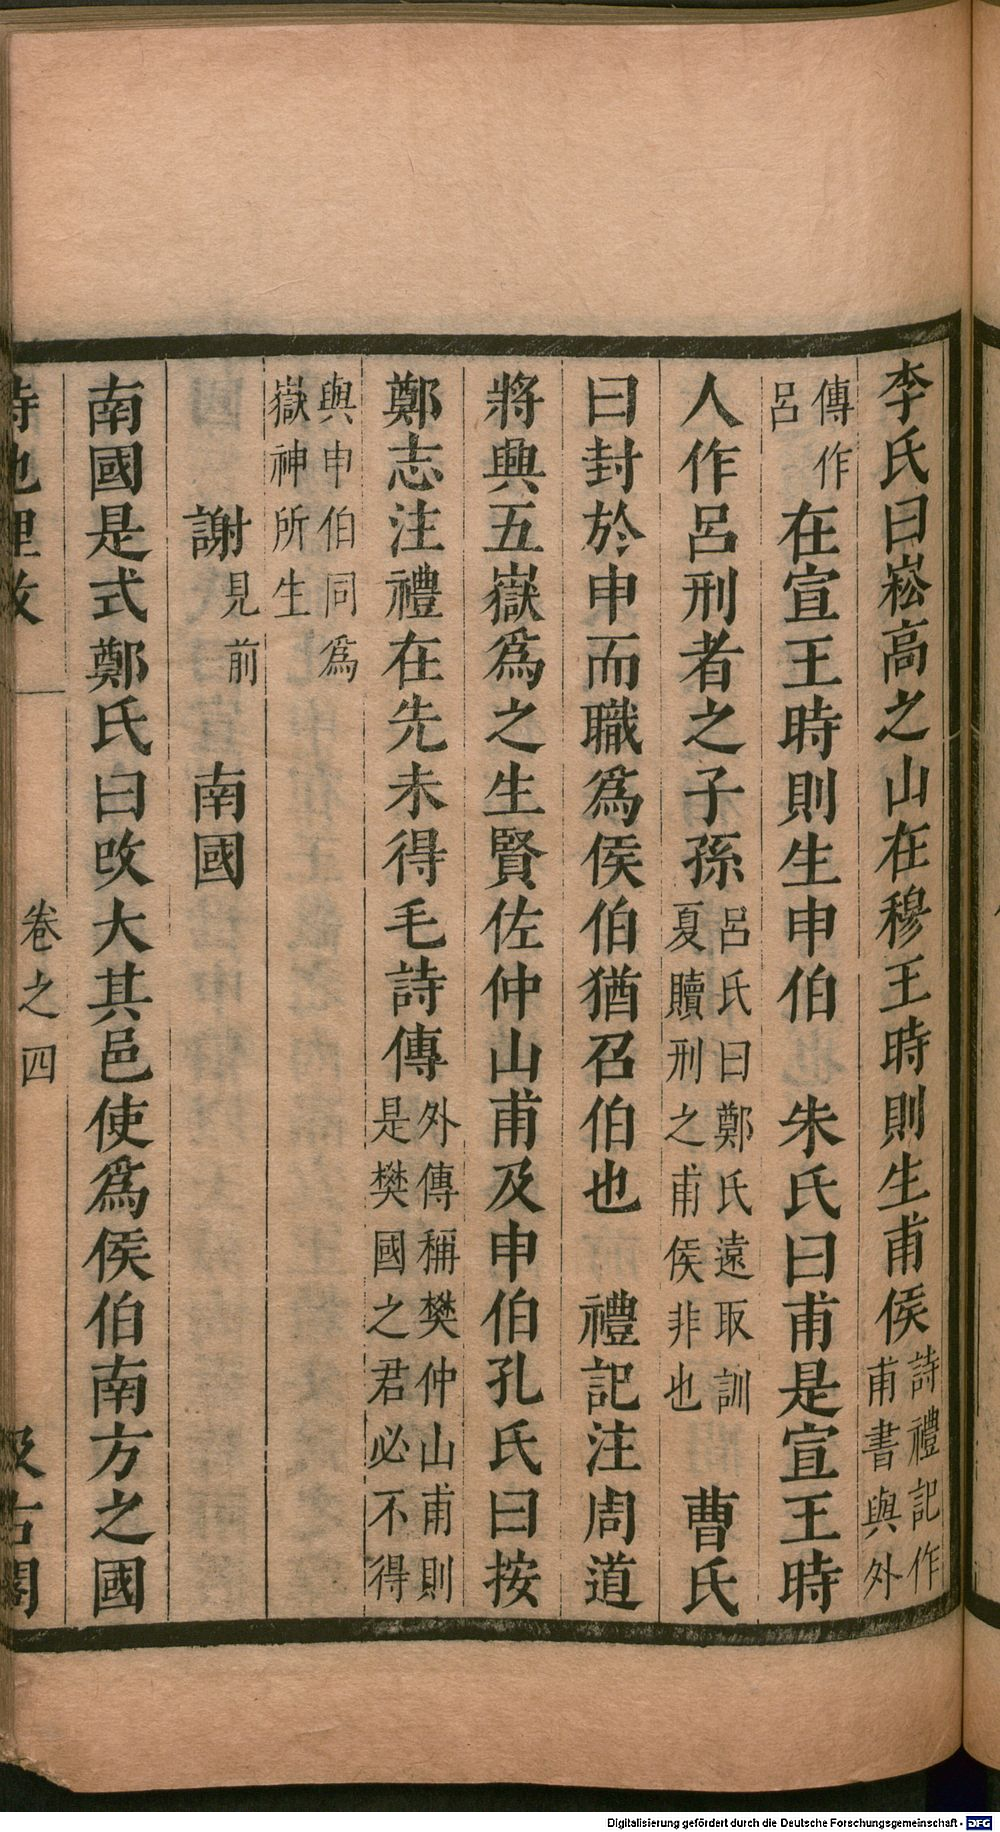 李氏曰崧高之山在穆王時則生甫侯詩禮記作甫書與外
傳作呂在宣王時則生申伯　朱氏曰甫是宣王時
人作呂刑者之子孫呂氏曰鄭氏遠取訓夏贖刑之甫侯非也　曹氏
曰封於申而職爲侯伯猶召伯也　禮記注周道
將興五嶽爲之生賢佐仲山甫及申伯孔氏曰按
鄭志注禮在先未得毛詩傳外傳稱樊仲山甫則是樊國之君必不得
與申伯同爲嶽神所生
謝見前　南國
南國是式鄭氏曰攺大其邑使爲侯伯南方之國
詩地理攷　卷之四　汲古閣
Digitalisierung gefördert durch die Deutsche Forschungsgemeinschaft - DFG